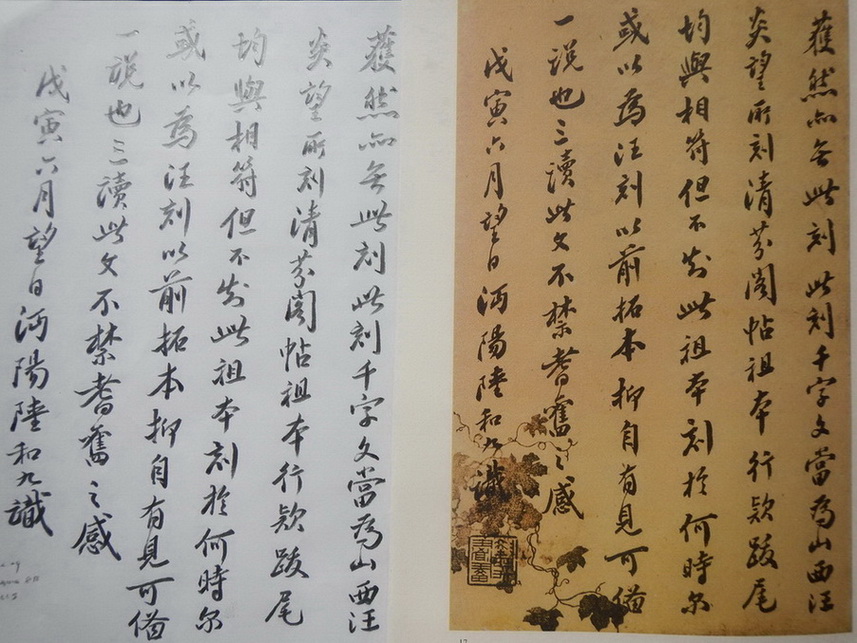 獲然亦無此刻此刻千字文當為山西汪
炎望所刻清芬閣帖祖本行款跋尾
均與相符但不知此祖本刻於何時尔
或以為汪刻以前拓本抑自有見可備
一說也三讀此文不禁耆舊之感
戊寅六月望日沔陽陸和九識
獲然亦無此刻此刻千字文當為山西汪
炎望所刻清芬閣帖祖本行款跋尾
均與相符但不知此祖本刻於何時尔
或以為汪刻以前拓本抑自有見可備
一說也三讀此文不禁耆舊之感
戊寅六月望日沔陽陸和九識